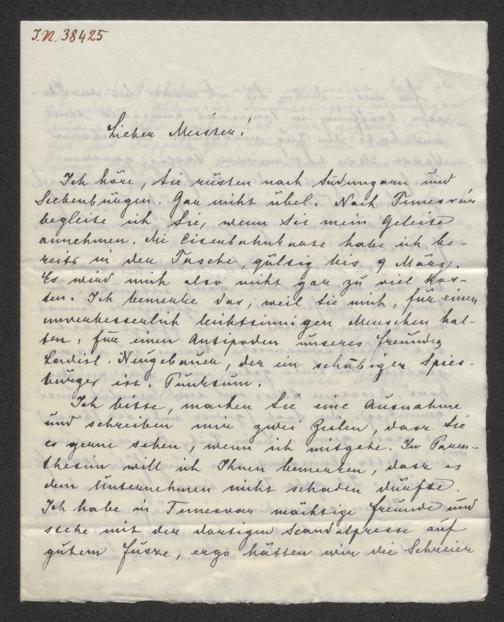 I.N. 38425
Lieber Meister!
Ich höre, Sie rüsten nach Südungarn und
Siebenbürgen. Gar nicht übel. Nach Temesvár
begleite ich Sie, wenn Sie mein Geleite
annehmen. Die Eisenbahnkarte habe ich be-
reits in der Tasche, gültig bis 9 März.
Es wird mich also nicht gar zu viel kos-
ten. Ich bemerke das, weil Sie mich, für einen
unverbesserlich leichtsinnigen Menschen hal-
ten, für einen Antipoden unseres Freundes
Neugebauer, der ein schäbiger Spies-
bürger ist. Punktum.
Ich bitte, machen Sie eine Ausnahme
und schreiben mir zwei Zeilen, dasz Sie
es gerne sehen, wenn ich mitgehe. In Paren-
thesim will ich Ihnen bemerken, dasz es
dem Unternehmen nicht schaden dürfte.
Ich habe in Temesvár mächtige Freunde und
stehe mit der dortigen Scandalpresse auf
gutem Fusze, ergo hätten wir die Schreier